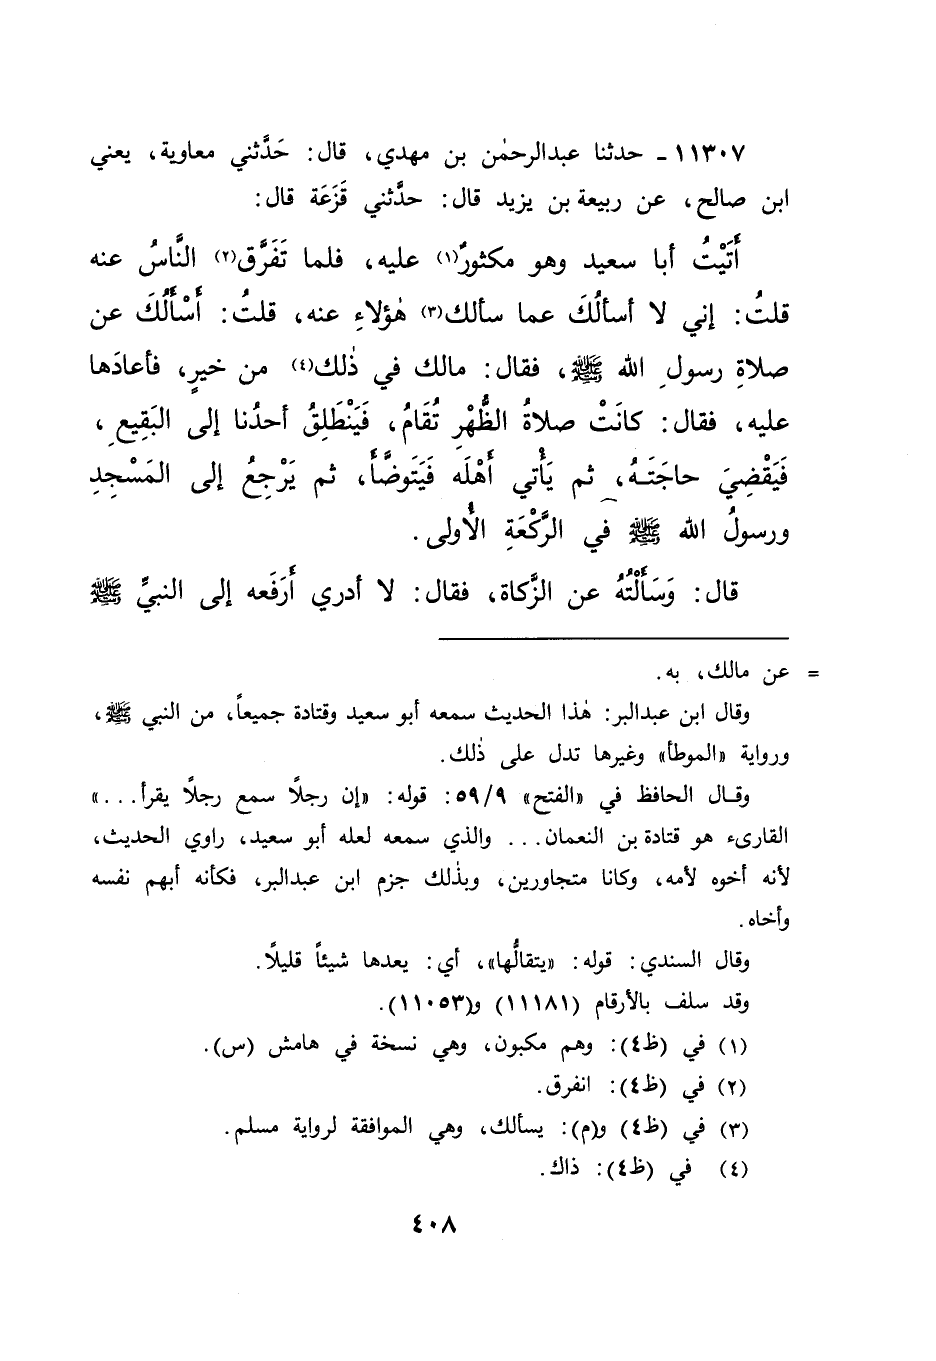 ١١٣٠٧ - حدثنا عبدالرحمٰن بن مهدي، قال: حَدَّثني معاوية، يعني
ابن صالح، عن ربيعة بن يزيد قال: حدَّثني قَزَعَة قال:
أَتَيْتُ أبا سعيد وهو مكثورٌ(١) عليه، فلما تَفَرَّق(٢) النَّاسُ عنه
قلتُ: إني لا أسألُكَ عما سألك(٣) هٰؤلاءِ عنه، قلتُ: أَسْأَلُكَ عن
صلاةِ رسولِ الله ﷺ، فقال: مالك في ذٰلك(٤) من خيرٍ، فأعادَها
عليه، فقال: كانَتْ صلاةُ الظُّهْرِ تُقَامُ، فَيَنْطَلِقُ أحدُنا إلى البَقِيعِ،
فَيَقْضِيَ حاجَتَهُ، ثم يَأْتي أَهْلَه فَيَتَوضَّأَ، ثم يَرْجِعُ إلى المَسْجِدِ
ورسولُ الله ﷺ في الرَّكْعَةِ الأُولى.
قال: وَسَأَلْتُهُ عن الزَّكاة، فقال: لا أدري أَرَفَعه إلى النبيِّ ﷺ
= عن مالك، به.
وقال ابن عبدالبر: هٰذا الحديث سمعه أبو سعيد وقتادة جميعاً، من النبي ﷺ،
ورواية «الموطأ» وغيرها تدل على ذٰلك.
وقال الحافظ في «الفتح» ٥٩/٩: قوله: «إن رجلًا سمع رجلًا يقرأ...»
القارىء هو قتادة بن النعمان... والذي سمعه لعله أبو سعيد، راوي الحديث،
لأنه أخوه لأمه، وكانا متجاورين، وبذٰلك جزم ابن عبدالبر، فكأنه أبهم نفسه
وأخاه.
وقال السندي: قوله: «يتقالُّها»، أي: يعدها شيئاً قليلًا.
وقد سلف بالأرقام (١١١٨١) و(١١٠٥٣).
(١) في (ظ٤): وهم مكبون، وهي نسخة في هامش (س).
(٢) في (ظ٤): انفرق.
(٣) في (ظ٤) و(م): يسألك، وهي الموافقة لرواية مسلم.
(٤) في (ظ٤): ذاك.
٤٠٨